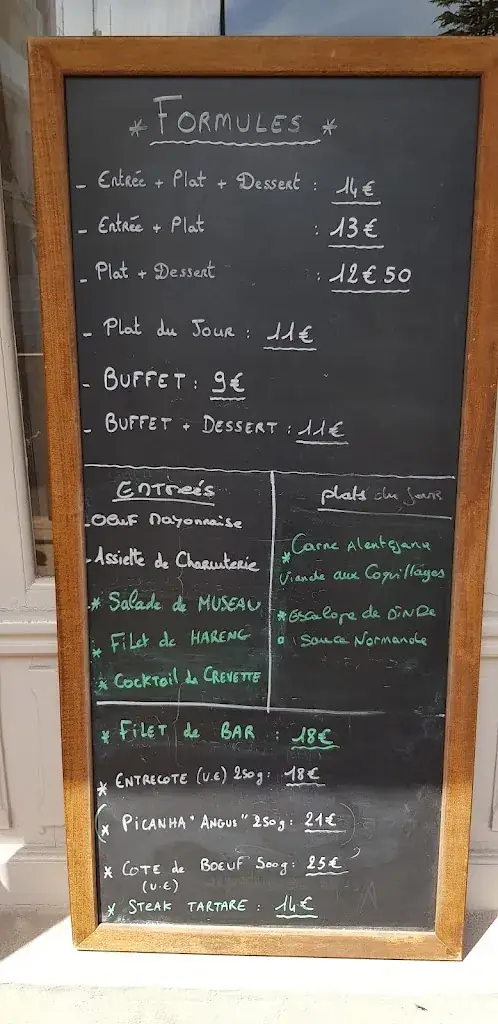 * FORMULES *
- Entrée + Plat + Dessert : 14€
- Entrée + Plat : 13€
- Plat + Dessert : 12€50
- Plat du Jour : 11€
- BUFFET : 9€
- BUFFET + DESSERT : 11€
ENTreéS
- OEUF Mayonnaise
- Assiette de Charcuterie
* Salade de MUSEAU
* Filet de HARENG
* Cocktail de CREVETTE
plats du jour
* Carne Alentejana
Viande aux Coquillages
* Escalope de DINDe
Sauce Normande
* FILET de BAR : 18€
* ENTRECOTE (U.E) 250g : 18€
(* PICANHA "ANGUS" 250g : 21€)
* COTE de BOEUF 500g : 25€
(U.E)
* STEAK TARTARE : 14€